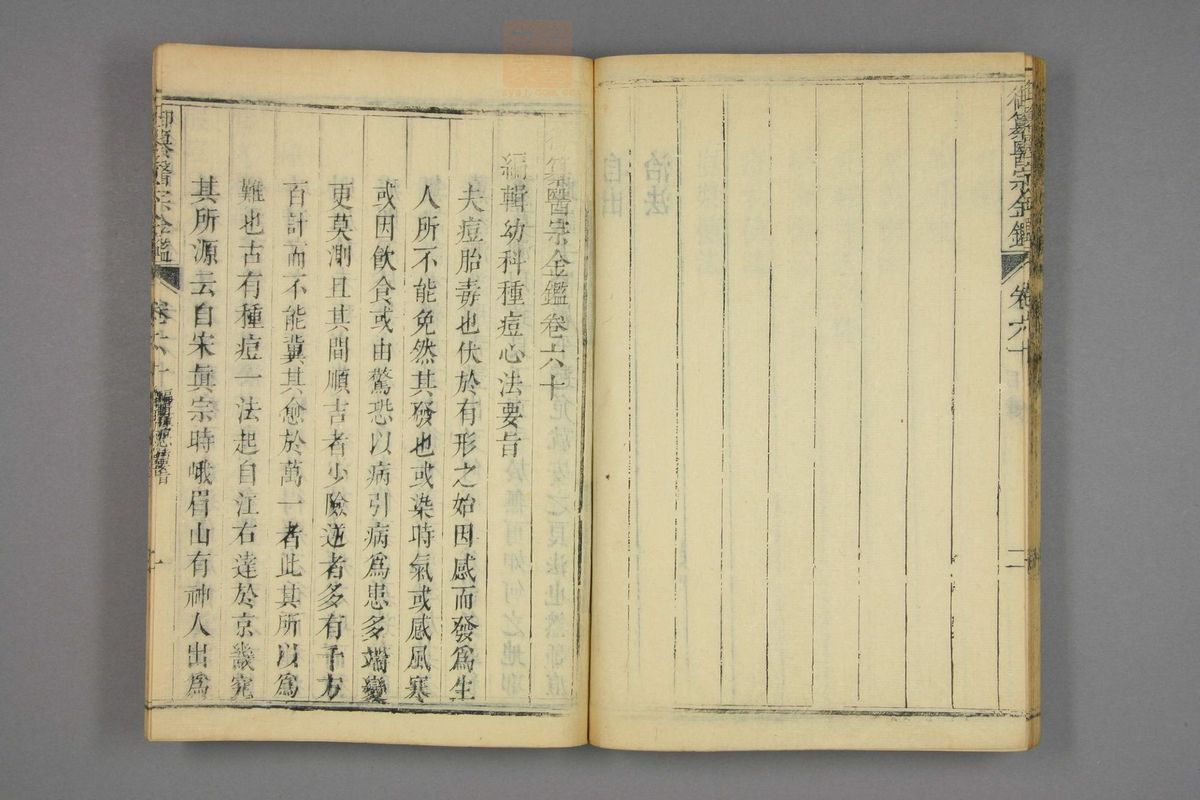 御纂醫宗金鑑 卷六十 二
治法
自出
御纂醫宗金鑑卷六十
編輯幼科種痘心法要旨
夫痘胎毒也伏於有形之始因感而發爲生
人所不能免然其發也或染時氣或感風寒
或因飲食或由驚恐以病引病爲患多端變
更莫測且其間順吉者少險逆者多有千方
百計而不能冀其愈於萬一者此其所以爲
難也古有種痘一法起自江右達於京畿究
其所源云自宋眞宗時峨眉山有神人出爲
御纂醫宗金鑑 卷六十 一